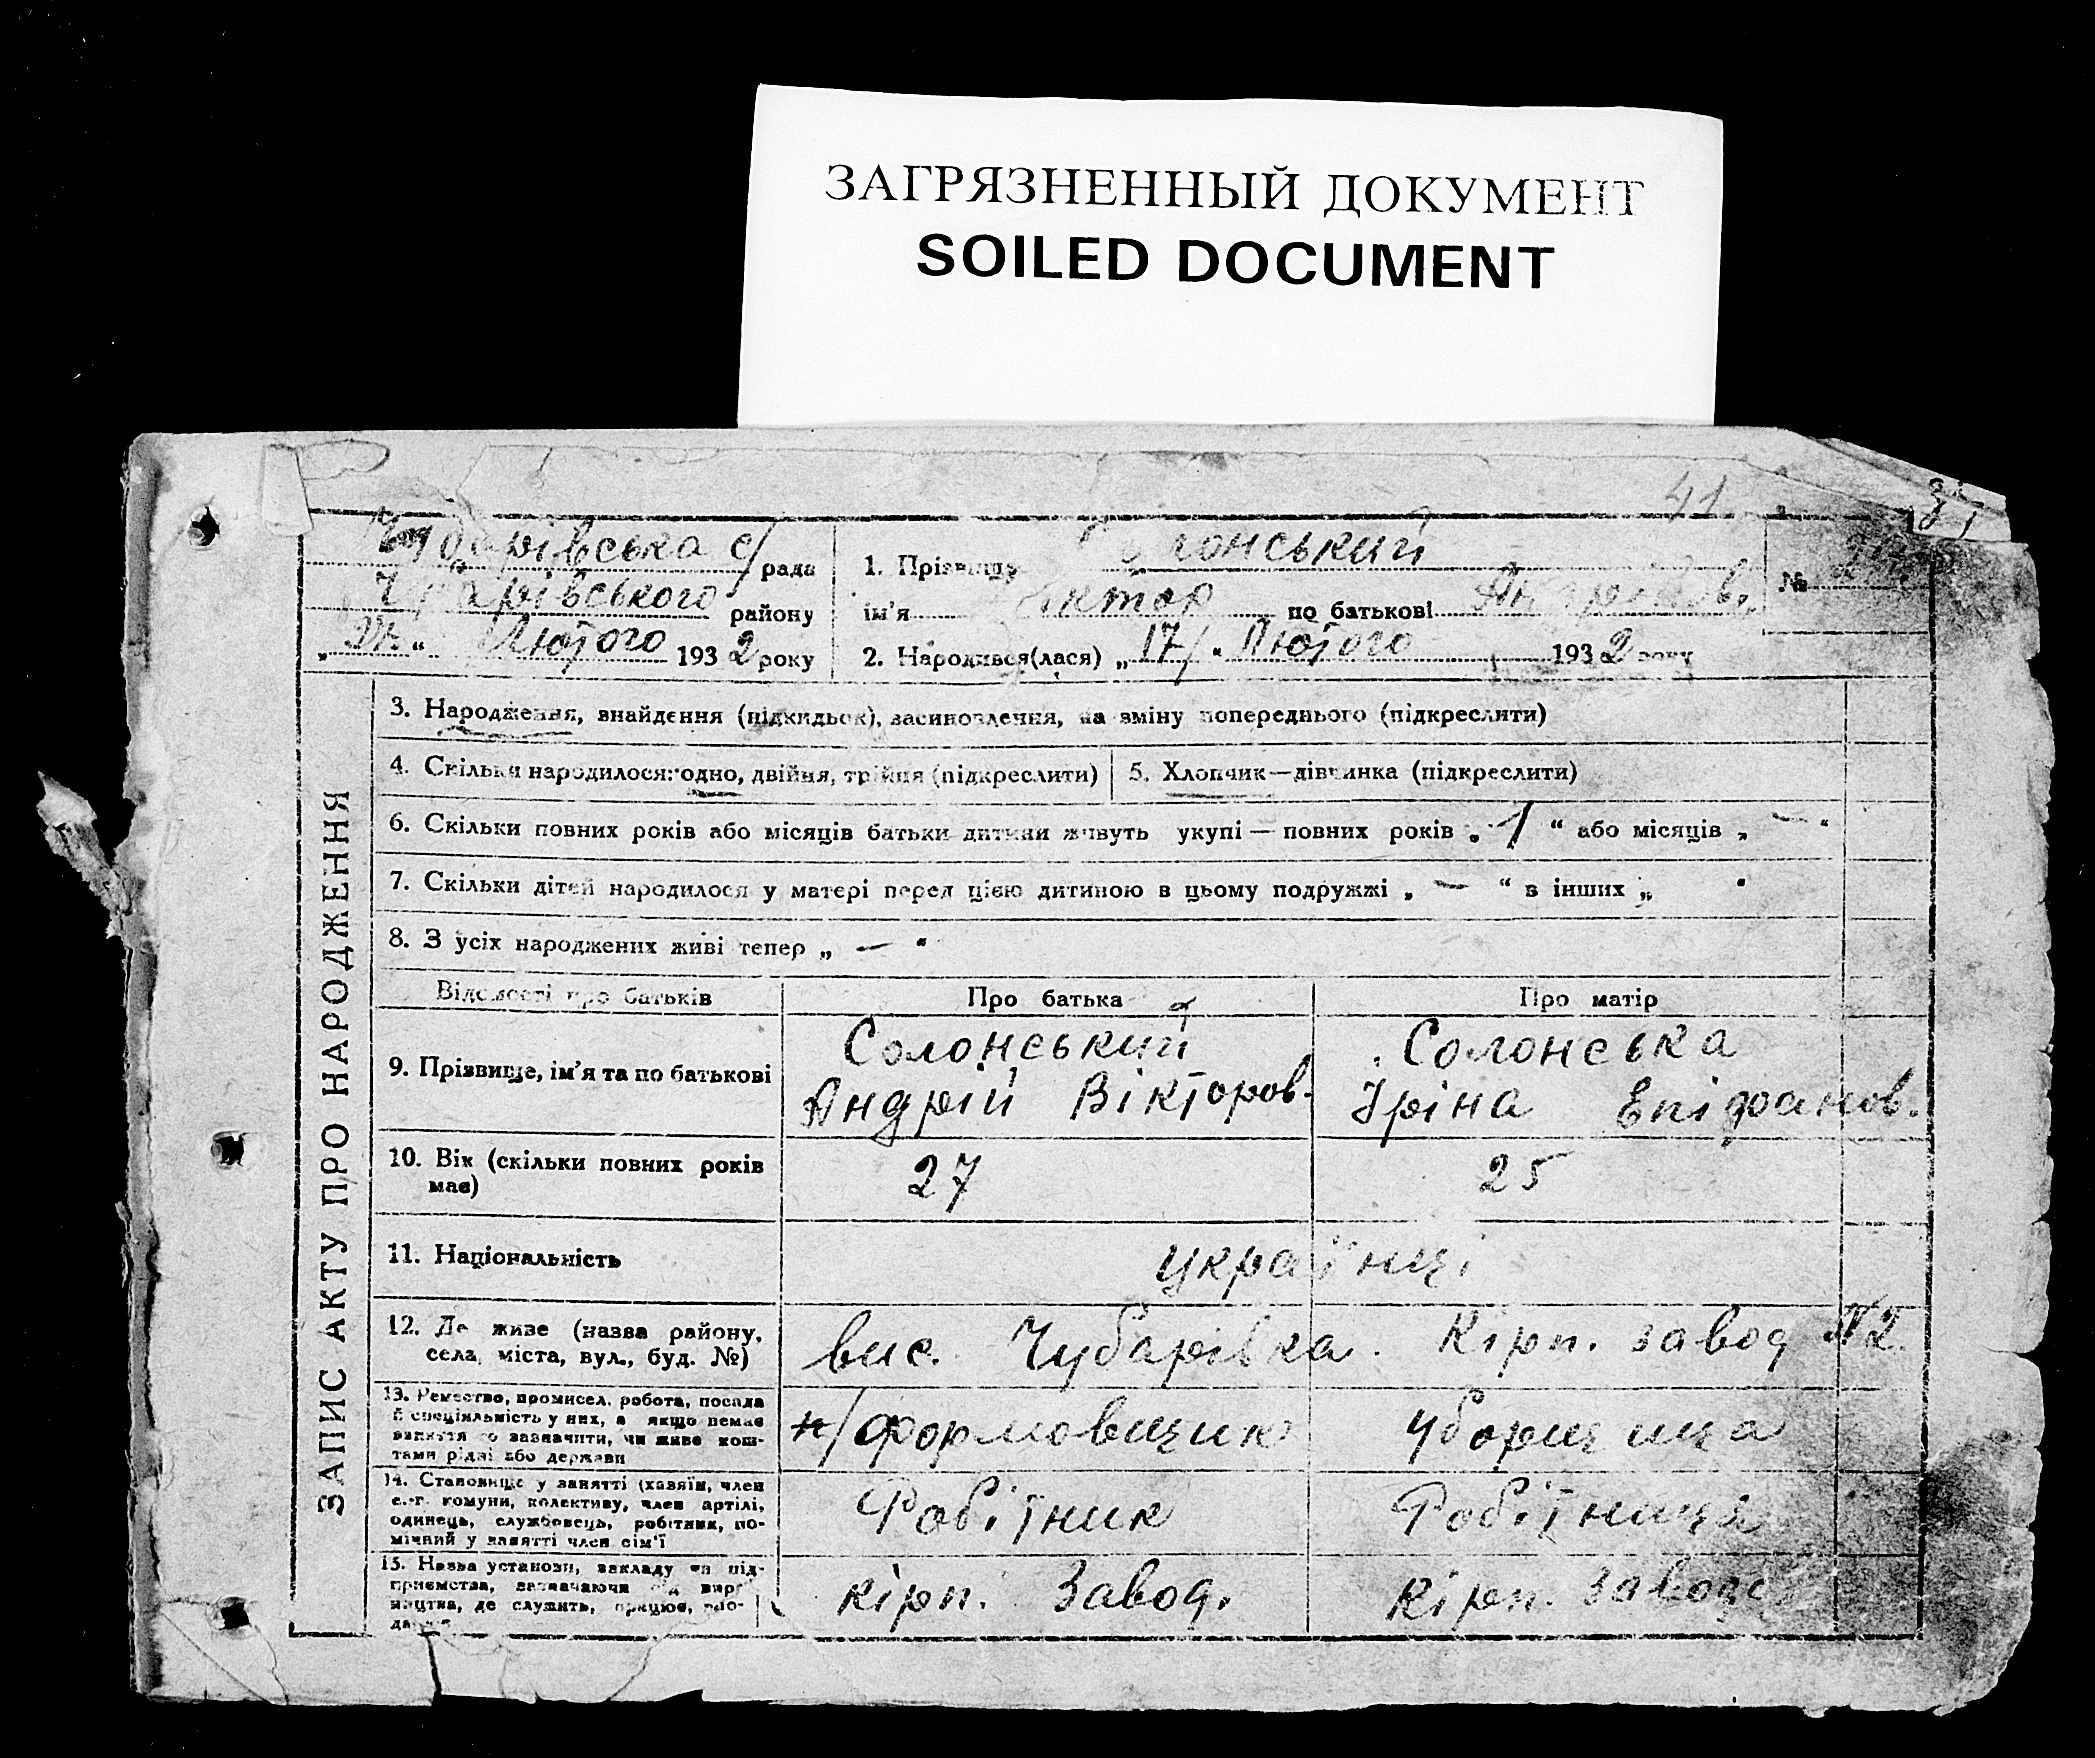 ЗАГРЯЗНЕННЫЙ ДОКУМЕНТ
SOILED DOCUMENT
41
Чубарівська с/рада
Чубарівського району
„27“ Лютого 1932 року
1. Прізвище Солонський
ім’я Віктор по батькові Андрійов.
2. Народився(лася) „17“ Лютого 1932 року
№
ЗАПИС АКТУ ПРО НАРОДЖЕННЯ
3. Народження, знайдення (підкидьок), засиновлення, на зміну попереднього (підкреслити)
4. Скільки народилося: одно, двійня, трійня (підкреслити)
5. Хлопчик—дівчинка (підкреслити)
6. Скільки повних років або місяців батьки дитини живуть укупі — повних років „1“ або місяців „—“
7. Скільки дітей народилося у матері перед цією дитиною в цьому подружжі „—“ в інших „ “
8. З усіх народжених живі тепер „—“
Відомості про батьків
Про батька
Про матір
9. Прізвище, ім’я та по батькові
Солонський
Андрій Вікторов.
Солонська
Іріна Епіфанов.
10. Вік (скільки повних років
має)
27
25
11. Національність
українці
12. Де живе (назва району,
села, міста, вул., буд. №)
вис. Чубарівка. Кірп. завод №2
13. Ремество, промисел, робота, посада
й спеціяльність у них, а якщо немає
заняття то зазначити, чи живе кош-
тами рідні або держави
н/формовщик
Уборщица
14. Становище у занятті (хазяїн, член
с.-г. комуни, колективу, член артілі,
одинець, службовець, робітник, по-
мічний у занятті член сім’ї
Робітник
Робітниця
15. Назва установи, закладу чи під-
приємства, зазначаючи від вироб-
ництва, де служить, працює,
кірп. Завод.
кірп. Завод